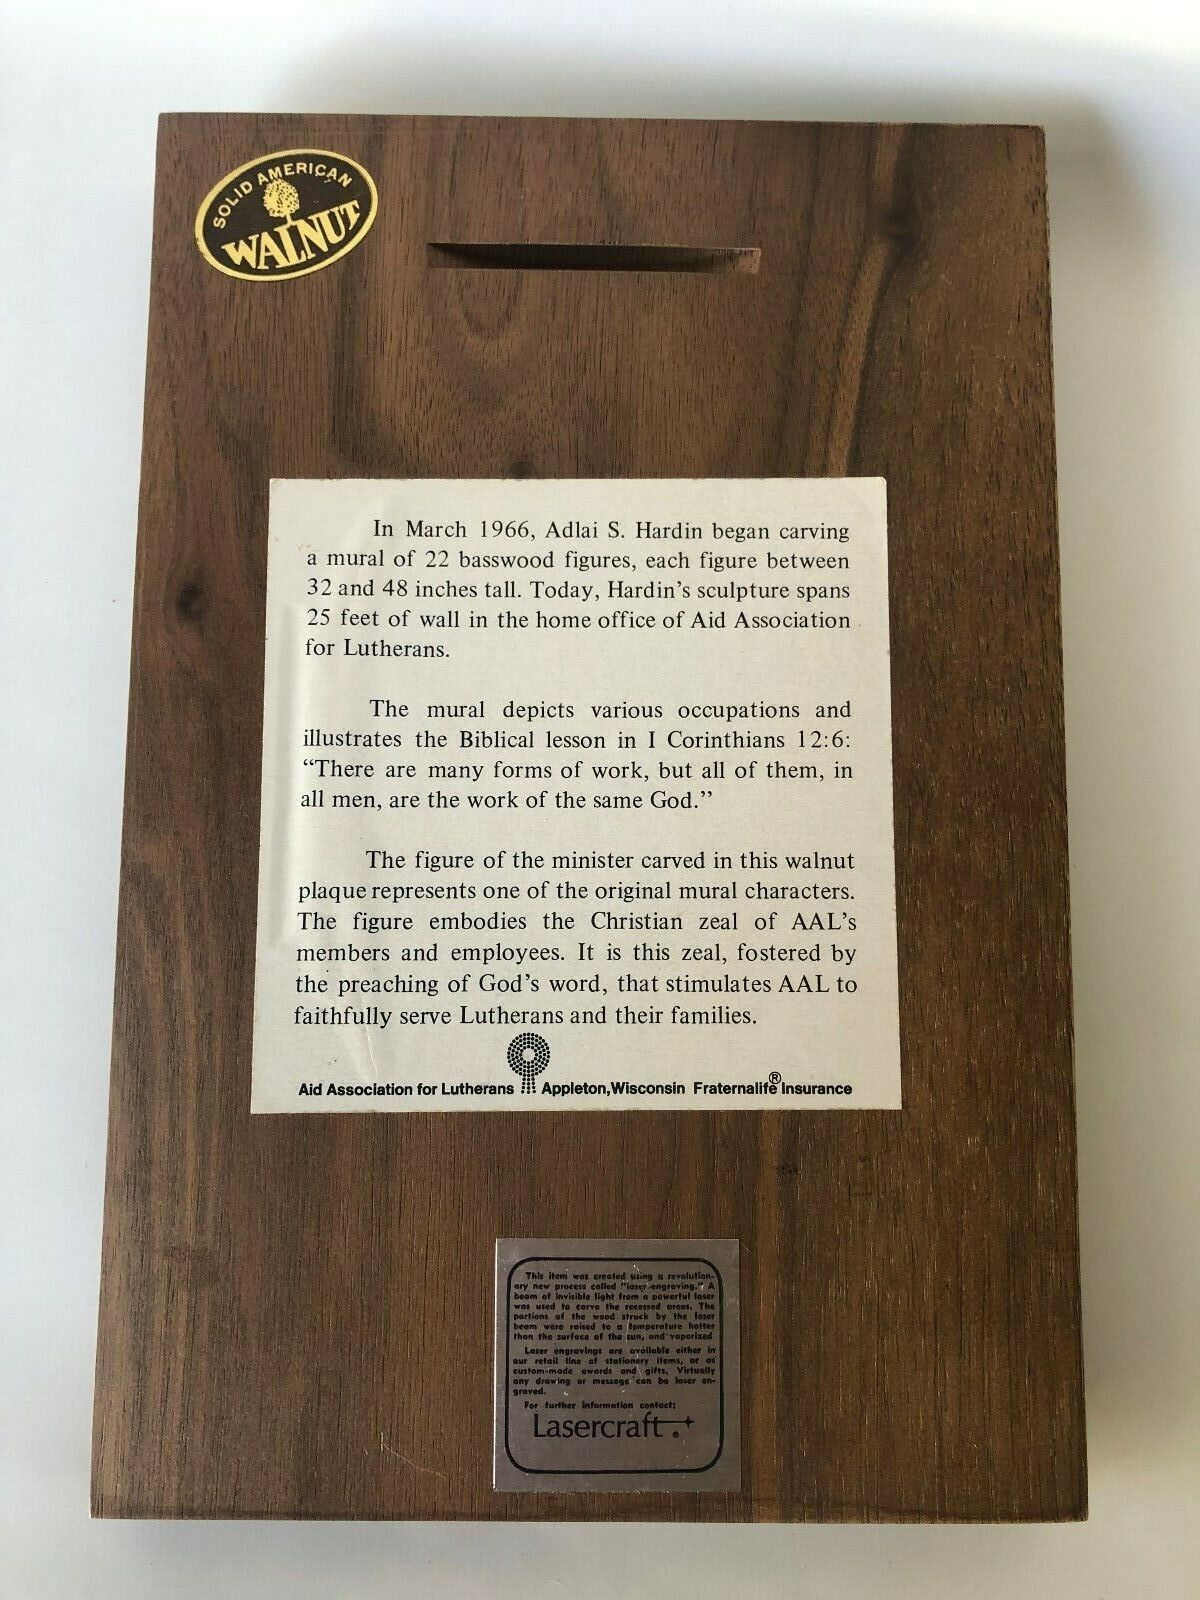 SOLID AMERICAN
WALNUT
In March 1966, Adlai S. Hardin began carving
a mural of 22 basswood figures, each figure between
32 and 48 inches tall. Today, Hardin's sculpture spans
25 feet of wall in the home office of Aid Association
for Lutherans.
The mural depicts various occupations and
illustrates the Biblical lesson in I Corinthians 12:6:
“There are many forms of work, but all of them, in
all men, are the work of the same God.”
The figure of the minister carved in this walnut
plaque represents one of the original mural characters.
The figure embodies the Christian zeal of AAL's
members and employees. It is this zeal, fostered by
the preaching of God's word, that stimulates AAL to
faithfully serve Lutherans and their families.
Aid Association for Lutherans Appleton, Wisconsin Fraternalife® Insurance
This item was created using a revolution-
ary new process called "laser-engraving." A
beam of invisible light from a powerful laser
was used to carve the recessed areas. The
portions of the wood struck by the laser
beam were raised to a temperature hotter
than the surface of the sun, and vaporized
Laser engravings are available either in
our retail line of stationery items, or as
custom-made awards and gifts. Virtually
any drawing or message can be laser en-
graved.
For further information contact:
Lasercraft®